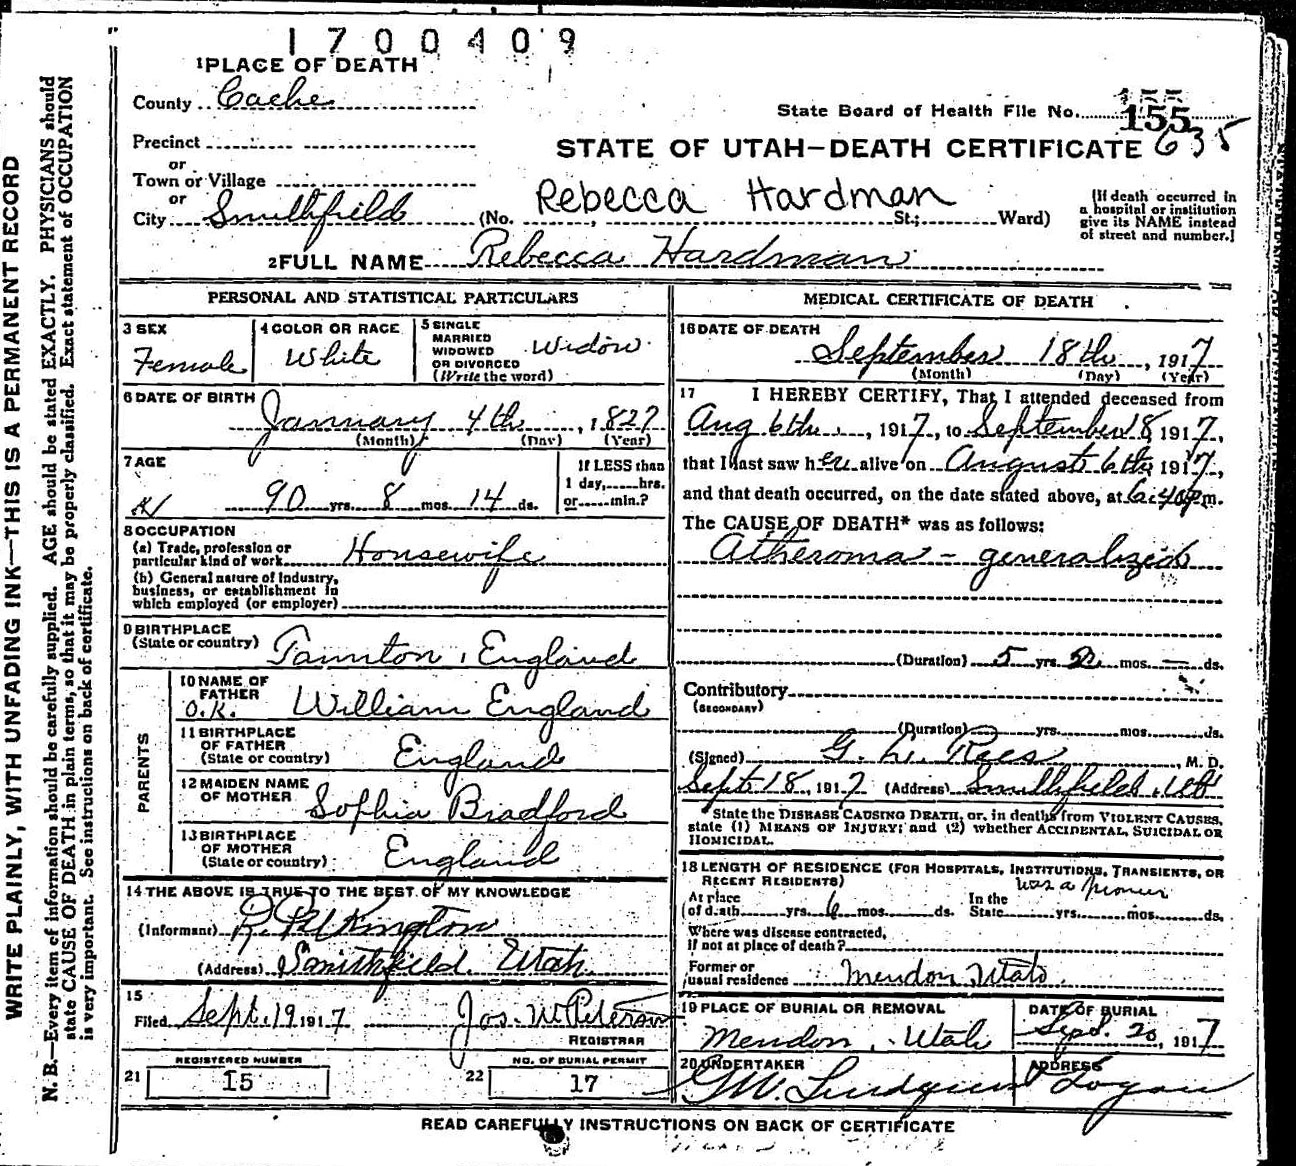 1700409
1 PLACE OF DEATH
County Cache
State Board of Health File No. 155
155
635
Precinct
or
Town or Village
or
City Smithfield
STATE OF UTAH—DEATH CERTIFICATE
Rebecca Hardman
(No. St.; Ward)
[If death occurred in
a hospital or institution
give its NAME instead
of street and number.]
2 FULL NAME Rebecca Hardman
PERSONAL AND STATISTICAL PARTICULARS
3 SEX
Female
4 COLOR OR RACE
White
5 SINGLE
MARRIED
WIDOWED
OR DIVORCED
(Write the word)
Widow
6 DATE OF BIRTH
January 4th, 1827
(Month) (Day) (Year)
7 AGE
90 yrs. 8 mos. 14 ds.
If LESS than
1 day, hrs.
or min.?
8 OCCUPATION
(a) Trade, profession or
particular kind of work Housewife
(b) General nature of Industry,
business, or establishment in
which employed (or employer)
9 BIRTHPLACE
(State or country) Taunton, England
PARENTS
10 NAME OF
FATHER
O.K. William England
11 BIRTHPLACE
OF FATHER
(State or country) England
12 MAIDEN NAME
OF MOTHER Sophia Bradford
13 BIRTHPLACE
OF MOTHER
(State or country) England
14 THE ABOVE IS TRUE TO THE BEST OF MY KNOWLEDGE
(Informant) R. Pilkington
(Address) Smithfield. Utah
15
Filed Sept. 19 1917 Jos. W Peterson
REGISTRAR
REGISTERED NUMBER
21 15
NO. OF BURIAL PERMIT
22 17
MEDICAL CERTIFICATE OF DEATH
16 DATE OF DEATH
September 18th, 1917
(Month) (Day) (Year)
17 I HEREBY CERTIFY, That I attended deceased from
Aug 6th, 1917, to September 18, 1917,
that I last saw her alive on August 6th, 1917,
and that death occurred, on the date stated above, at 6:40 P m.
The CAUSE OF DEATH* was as follows:
Atheroma - generalized
(Duration) 5 yrs. mos. — ds.
Contributory
(SECONDARY)
(Duration) yrs. mos. ds.
(Signed) G. L. Rees, M. D.
Sept. 18, 1917 (Address) Smithfield, Ut
State the DISEASE CAUSING DEATH, or, in deaths from VIOLENT CAUSES,
state (1) MEANS OF INJURY: and (2) whether ACCIDENTAL, SUICIDAL OR
HOMICIDAL.
18 LENGTH OF RESIDENCE (FOR HOSPITALS, INSTITUTIONS, TRANSIENTS, OR
RECENT RESIDENTS)
was a pioneer
At place
of death yrs. 6 mos. ds.
In the
State yrs. mos. ds.
Where was disease contracted,
If not at place of death?
Former or
usual residence Mendon Utah
19 PLACE OF BURIAL OR REMOVAL
Mendon, Utah
DATE OF BURIAL
Sept. 20, 1917
20 UNDERTAKER
G W. Lindquist
ADDRESS
Logan
READ CAREFULLY INSTRUCTIONS ON BACK OF CERTIFICATE
WRITE PLAINLY, WITH UNFADING INK—THIS IS A PERMANENT RECORD
N. B.—Every item of information should be carefully supplied. AGE should be stated EXACTLY. PHYSICIANS should
state CAUSE OF DEATH in plain terms, so that it may be properly classified. Exact statement of OCCUPATION
is very important. See instructions on back of certificate.